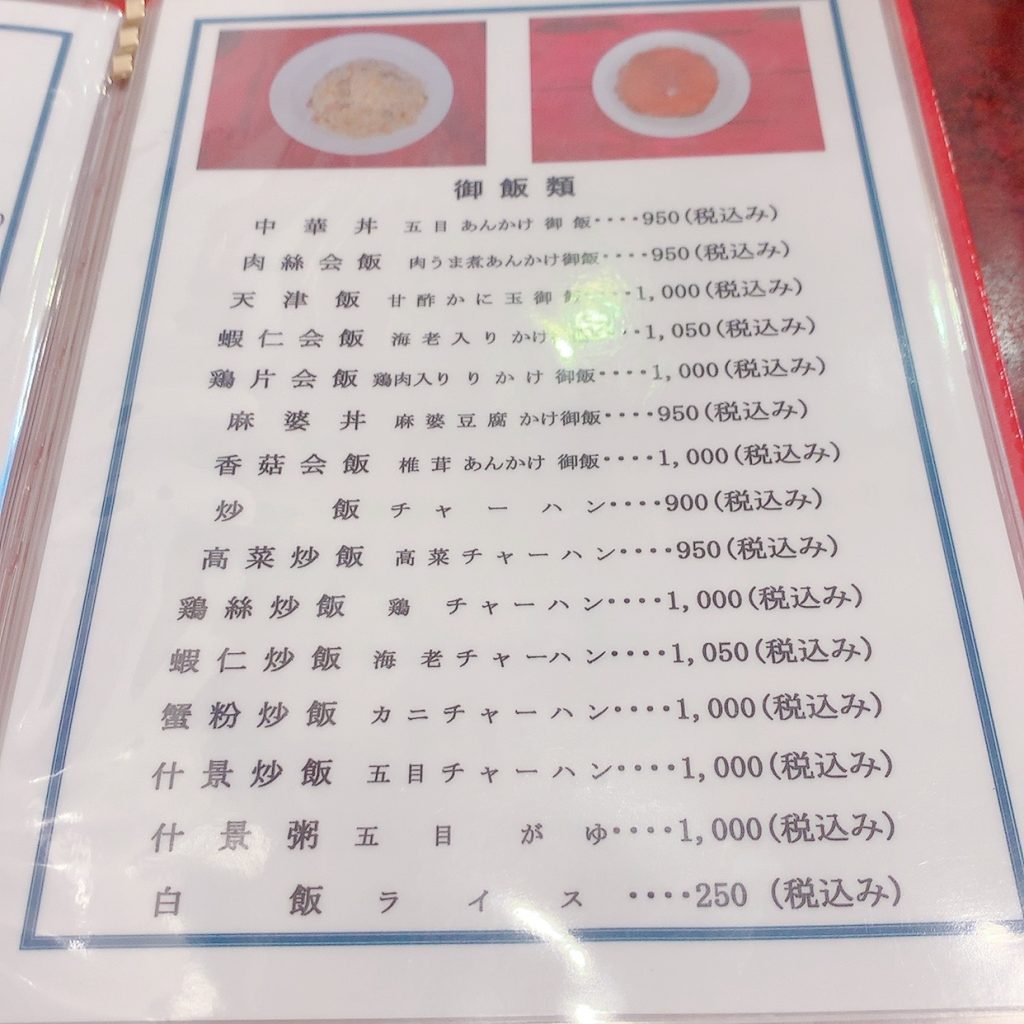 御飯類
中華丼 五目あんかけ御飯‥‥950(税込み)
肉絲会飯 肉うま煮あんかけ御飯‥‥950(税込み)
天津飯 甘酢かに玉御飯‥‥1,000(税込み)
蝦仁会飯 海老入りかけ‥‥1,050(税込み)
鶏片会飯 鶏肉入りりかけ御飯‥‥1,000(税込み)
麻婆丼 麻婆豆腐かけ御飯‥‥950(税込み)
香菇会飯 椎茸あんかけ御飯‥‥1,000(税込み)
炒飯 チャーハン‥‥900(税込み)
高菜炒飯 高菜チャーハン‥‥950(税込み)
鶏絲炒飯 鶏チャーハン‥‥1,000(税込み)
蝦仁炒飯 海老チャーハン‥‥1,050(税込み)
蟹粉炒飯 カニチャーハン‥‥1,000(税込み)
什景炒飯 五目チャーハン‥‥1,000(税込み)
什景粥 五目がゆ‥‥1,000(税込み)
白飯 ライス‥‥250(税込み)